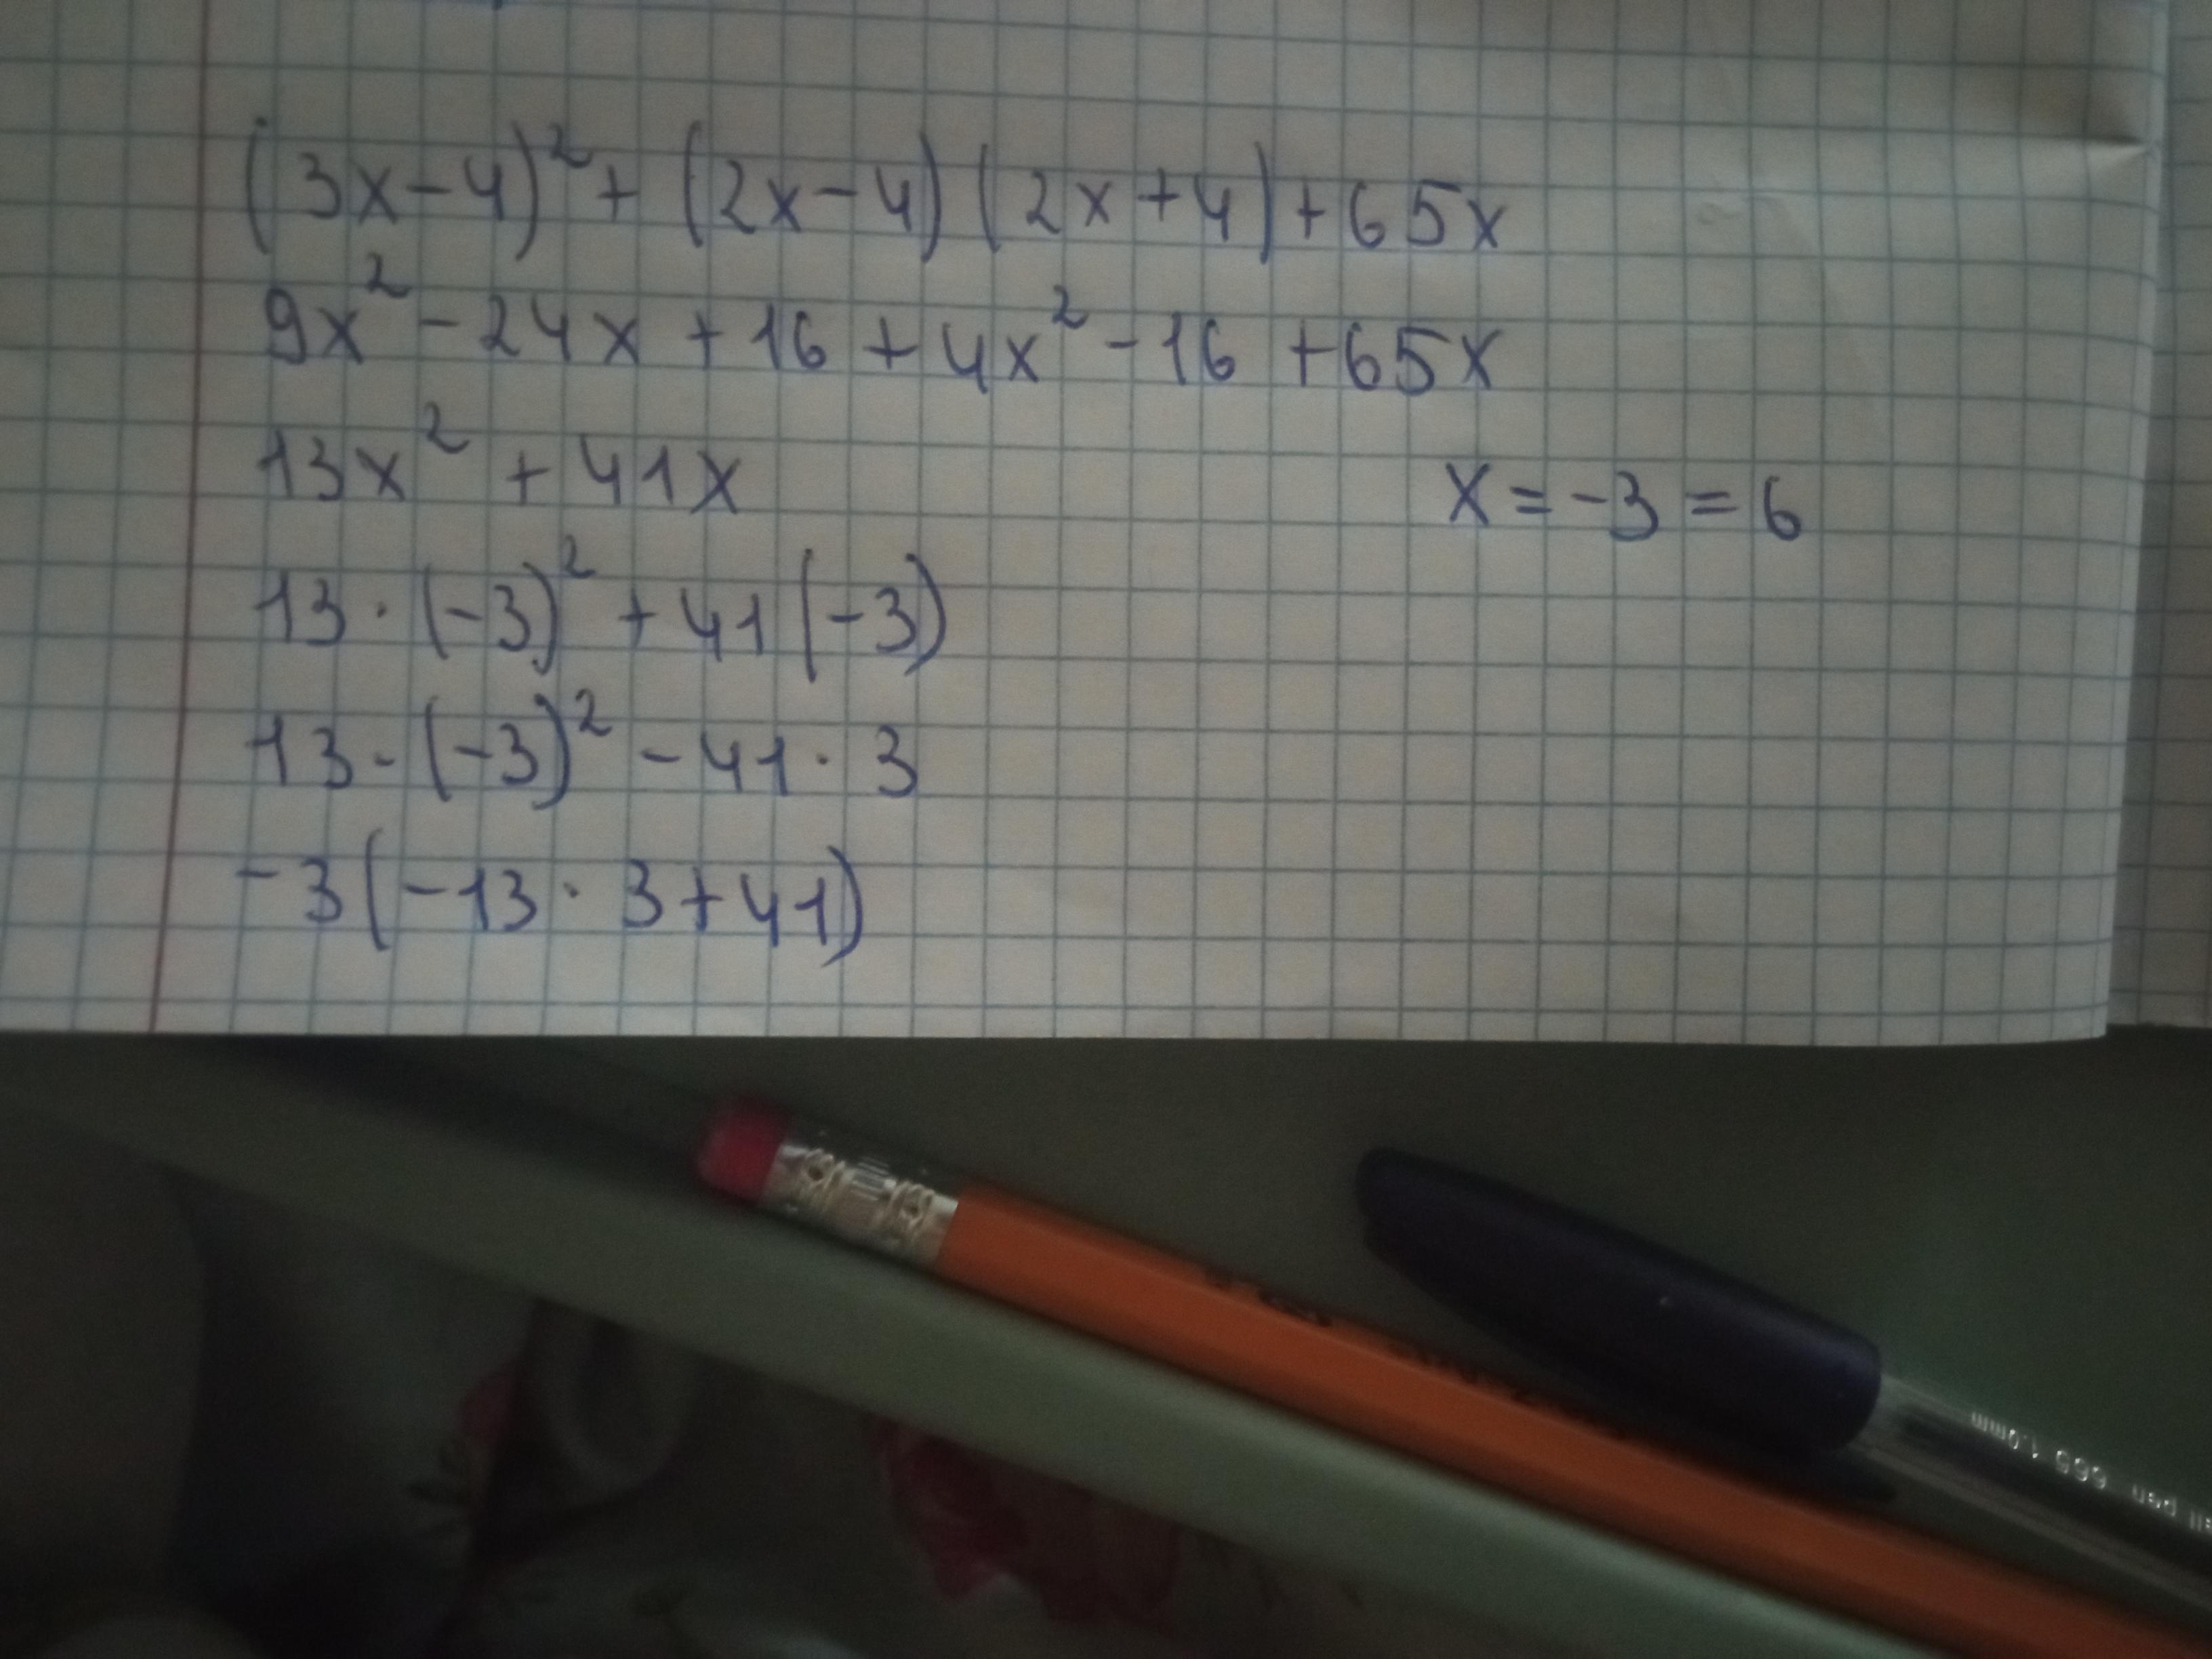 (3x-4)²+(2x-4)(2x+4)+65x
9x²-24x+16+4x²-16+65x
13x²+41x
x=-3=6
13·(-3)²+41(-3)
13·(-3)²-41·3
-3(-13·3+41)
pen 665 1.0mm